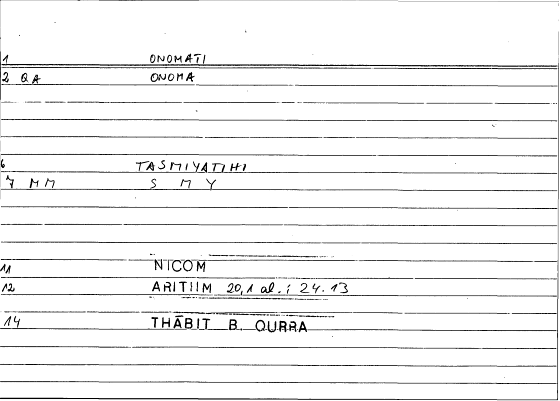 1 ONOMATI
2 QA ONOMA
6 TASMIYATIHI
7 MM S M Y
11 NICOM
12 ARITIIM 20,1 al.: 24.13
14 THĀBIT B. QURRA